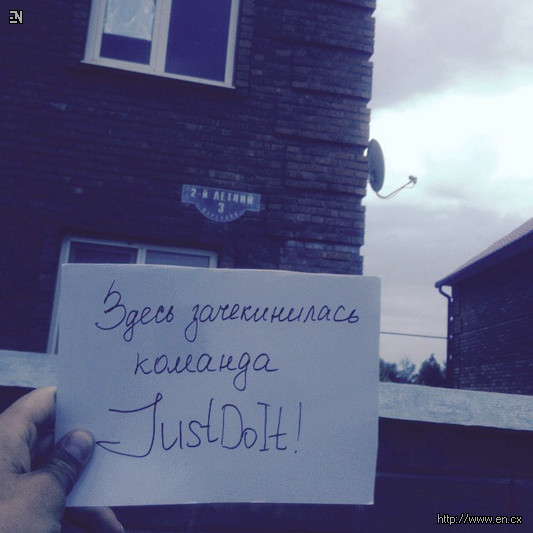 EN
2-Й ЛЕТНИЙ
3
ПЕРЕУЛОК
Здесь зачекинилась
команда
JustDoIt!
http://www.en.cx